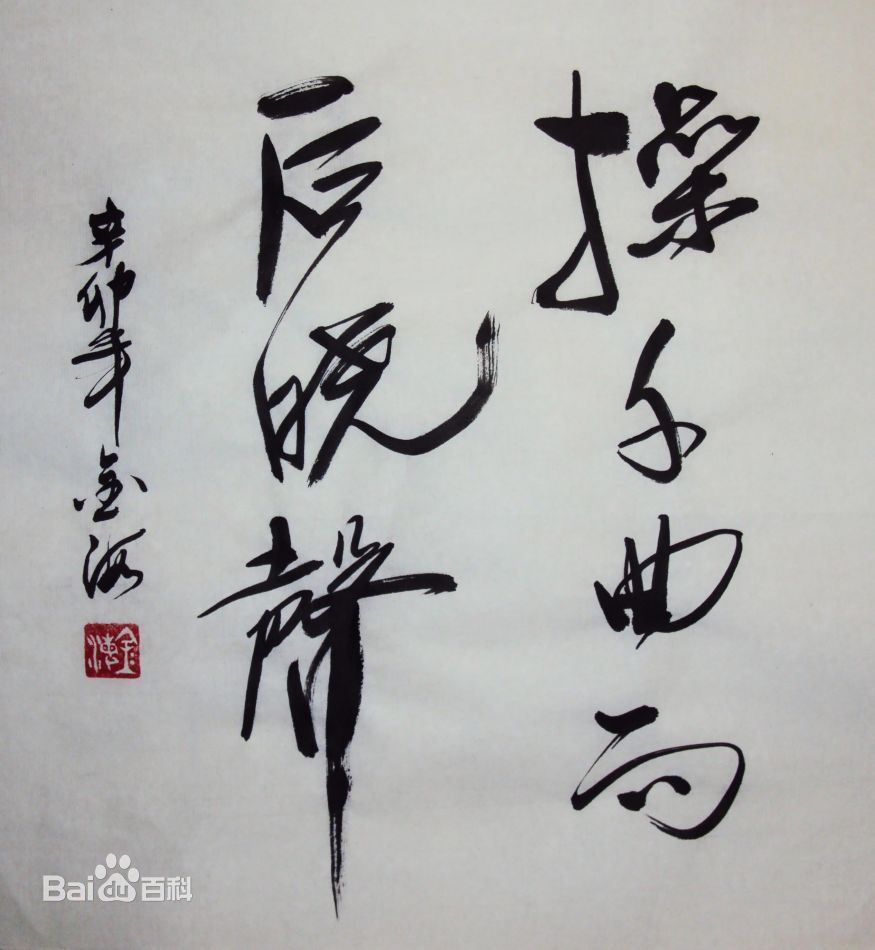 操千曲而
后晓聲
辛卯年金海
金海
Bai du 百科